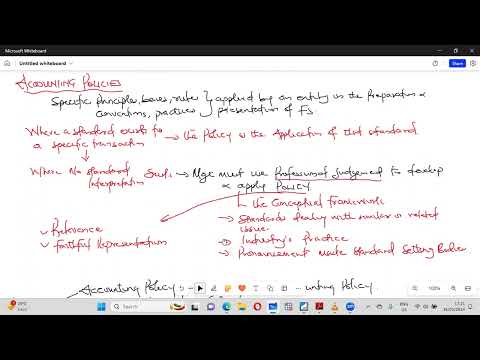 Microsoft Whiteboard
Untitled whiteboard
ACCOUNTING POLICIES
Specific Principles, bases, rules } applied by an entity in the Preparation &
conventions, practices } presentation of FS
Where a standard exists for
a specific transaction → the Policy is the Application of that standard
Where No standard
Interpretation
Mgt must use Professional Judgement to develop
& apply POLICY
the Conceptual Framework
Relevance
Faithful Representation
Standards dealing with similar or related
issue.
Industry's Practice
Pronouncement made Standard Setting Bodies
Accounting Policy
unting Policy
ENG
17:21